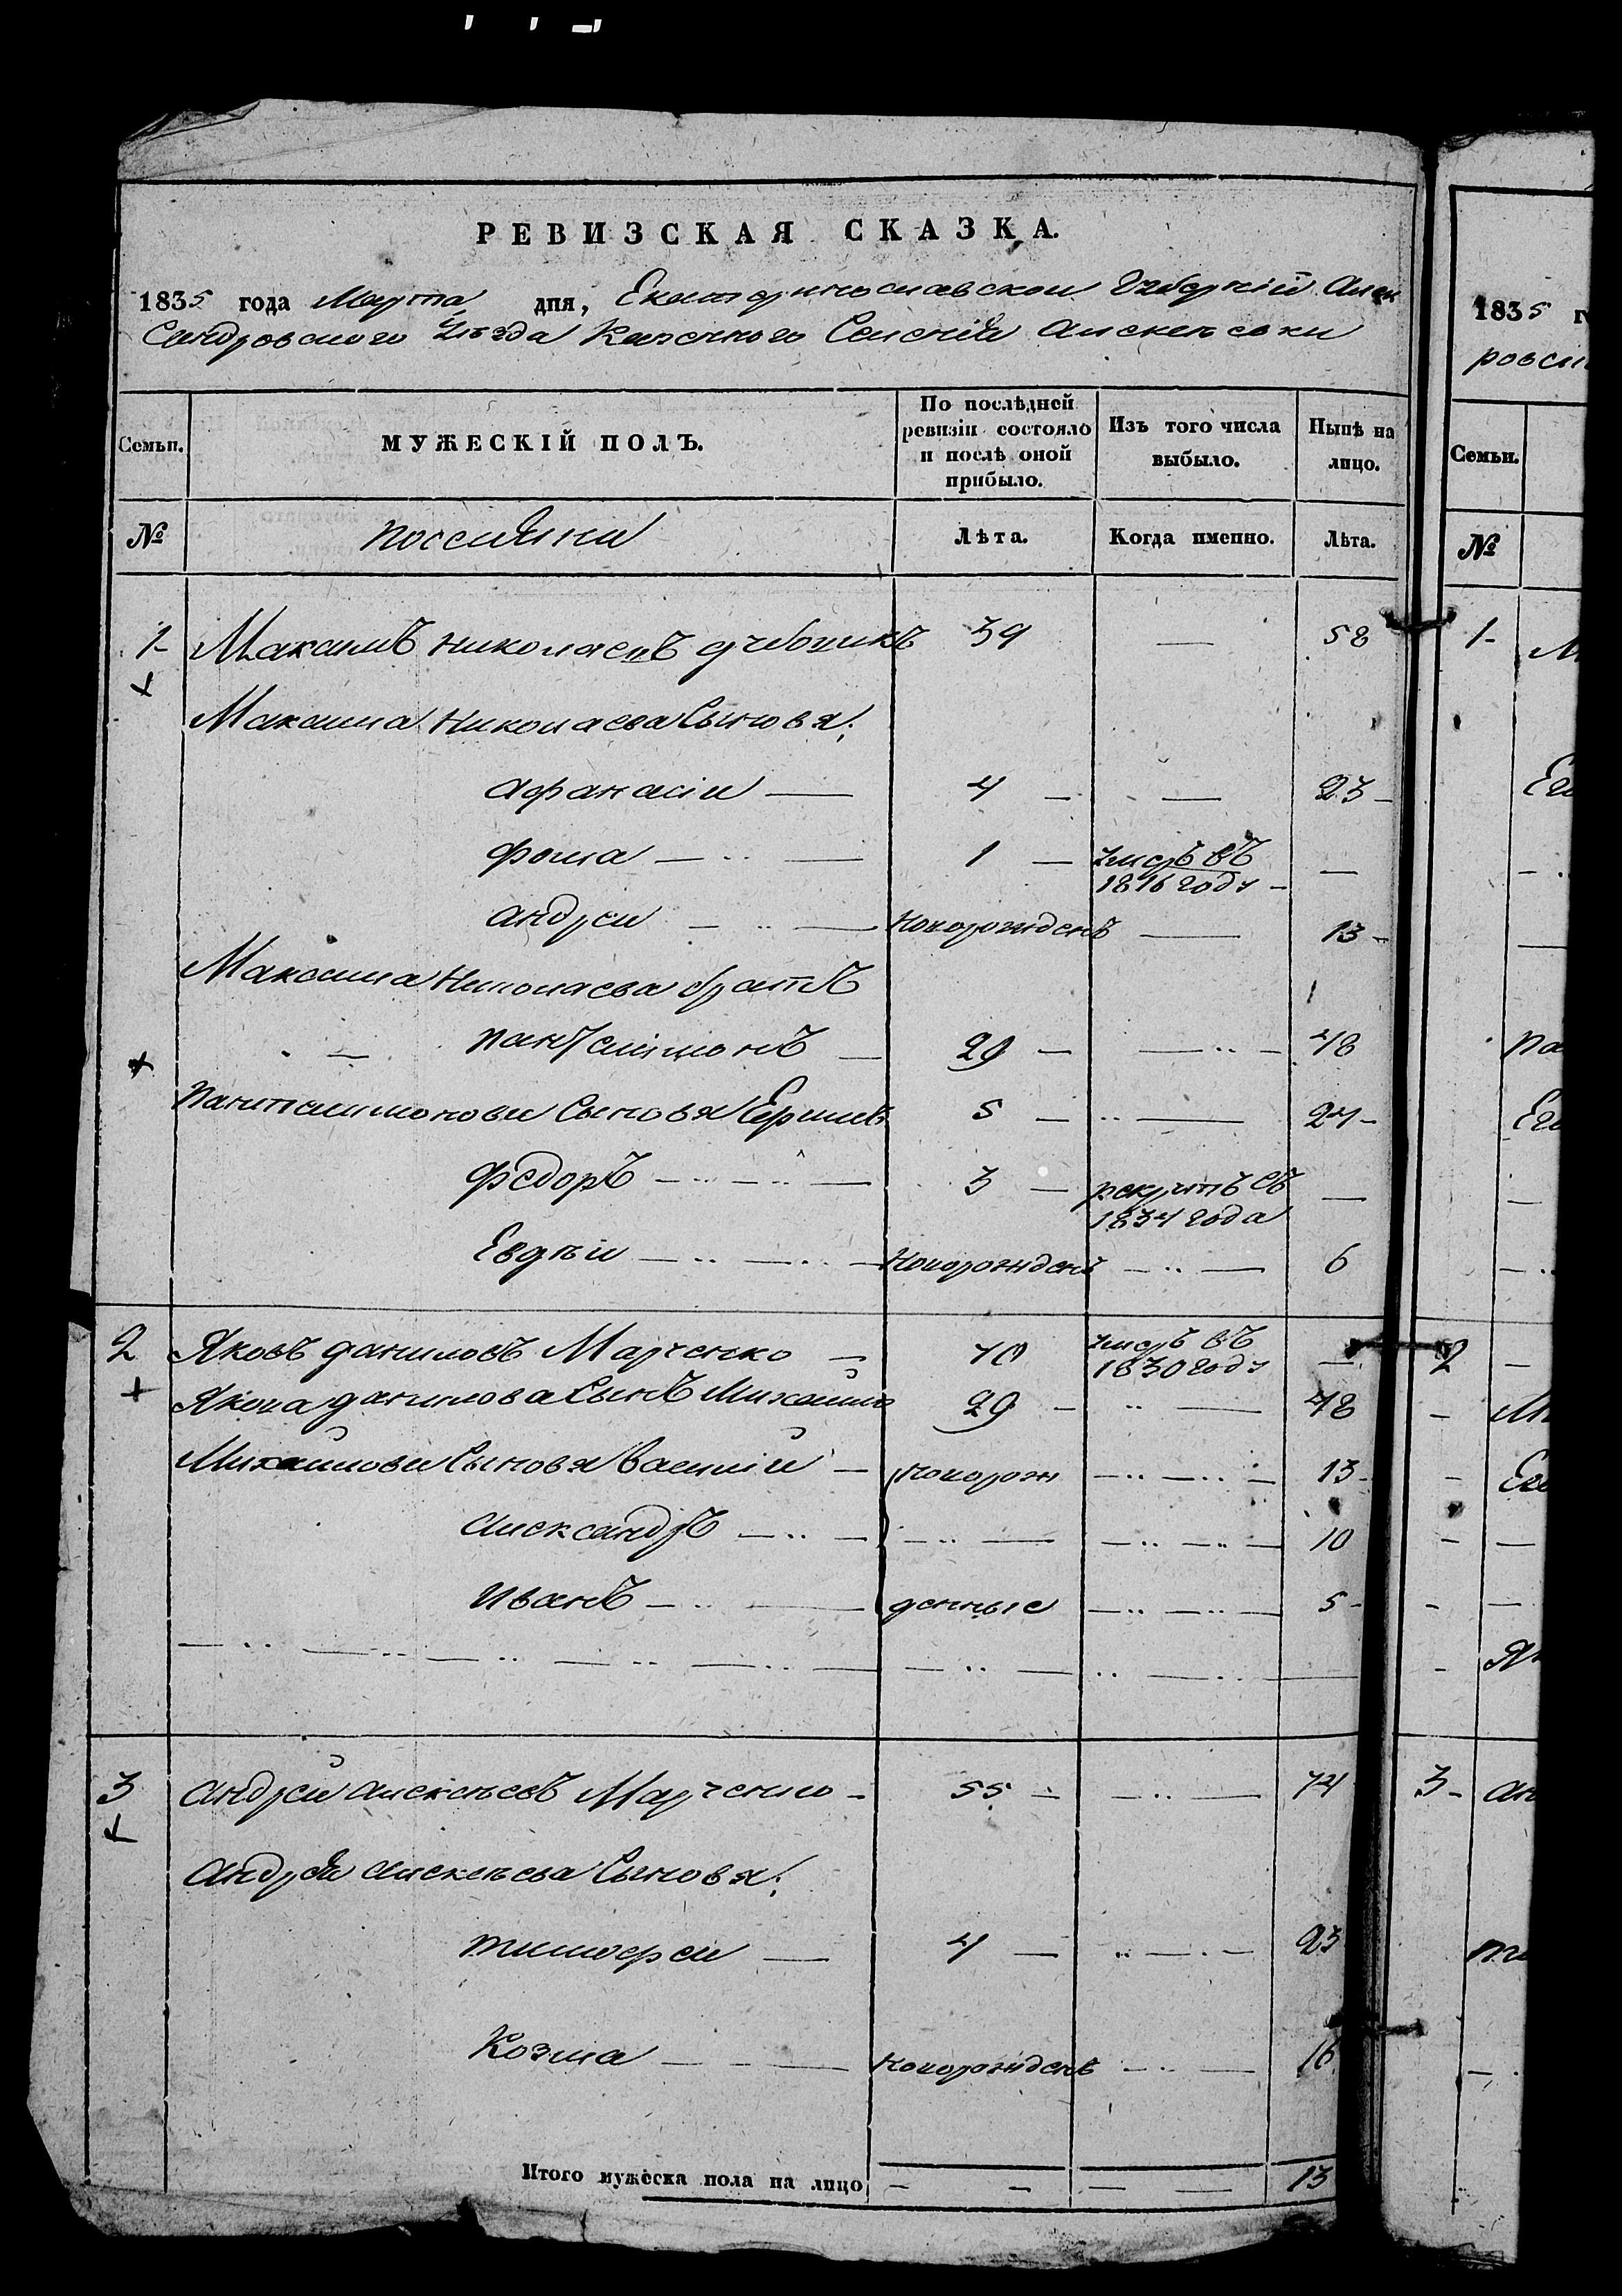 РЕВИЗСКАЯ СКАЗКА.
1835 года Марта дня, Екатеринославской Губерніи Алек
сандровского Уѣзда Казенного Селенія Алексѣевки
Семьи.
МУЖЕСКІЙ ПОЛЪ.
По послѣдней ревизіи состояло и послѣ оной прибыло.
Изъ того числа выбыло.
Нынѣ на лицо.
№
Поселяни
Лѣта.
Когда именно.
Лѣта.
1 Максимъ Николаевъ 39 — 58
Максима Николаева Сыновя:
Афанасіи — 4 — — 23
Фома — 1 — умеръ въ 1816 году —
Андреи — Новорожденъ — 13
Максима Николаева братъ
Пантелимонъ — 29 — — 48
Пантелимонови Сыновя 5 — — 24
Федоръ — 3 — рекрутъ съ 1834 года —
Новорожденъ — 6
2 Яковъ Даниловъ Марченко — 70 умеръ въ 1830 году —
Якова Данилова Сынъ Михайло 29 — — 48
Михайлови Сыновя Василій — новорож — 13
Александръ — — — 10
Иванъ — денные — 5
3 Андрей Алексѣевъ Марченко — 55 — — 74
Андрея Алексѣева Сыновя:
Тимофеи — 4 — — 23
Козма — новорожденъ — 16
Итого мужеска пола на лицо — — — — 13
1835 г
ровск
Семьи.
№
1
М
Па
2
3 Ан